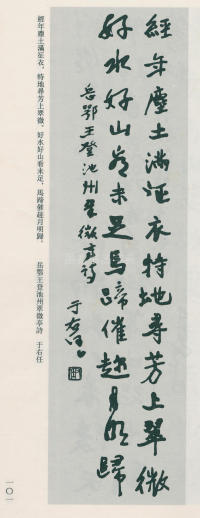 經年塵土滿征衣特地尋芳上翠微
好水好山看未足馬蹄催趁月明歸
岳鄂王登池州翠微亭詩
于右任
經年塵土滿征衣，特地尋芳上翠微。好水好山看未足，馬蹄催趁月明歸。
岳鄂王登池州翠微亭詩　于右任
一〇一